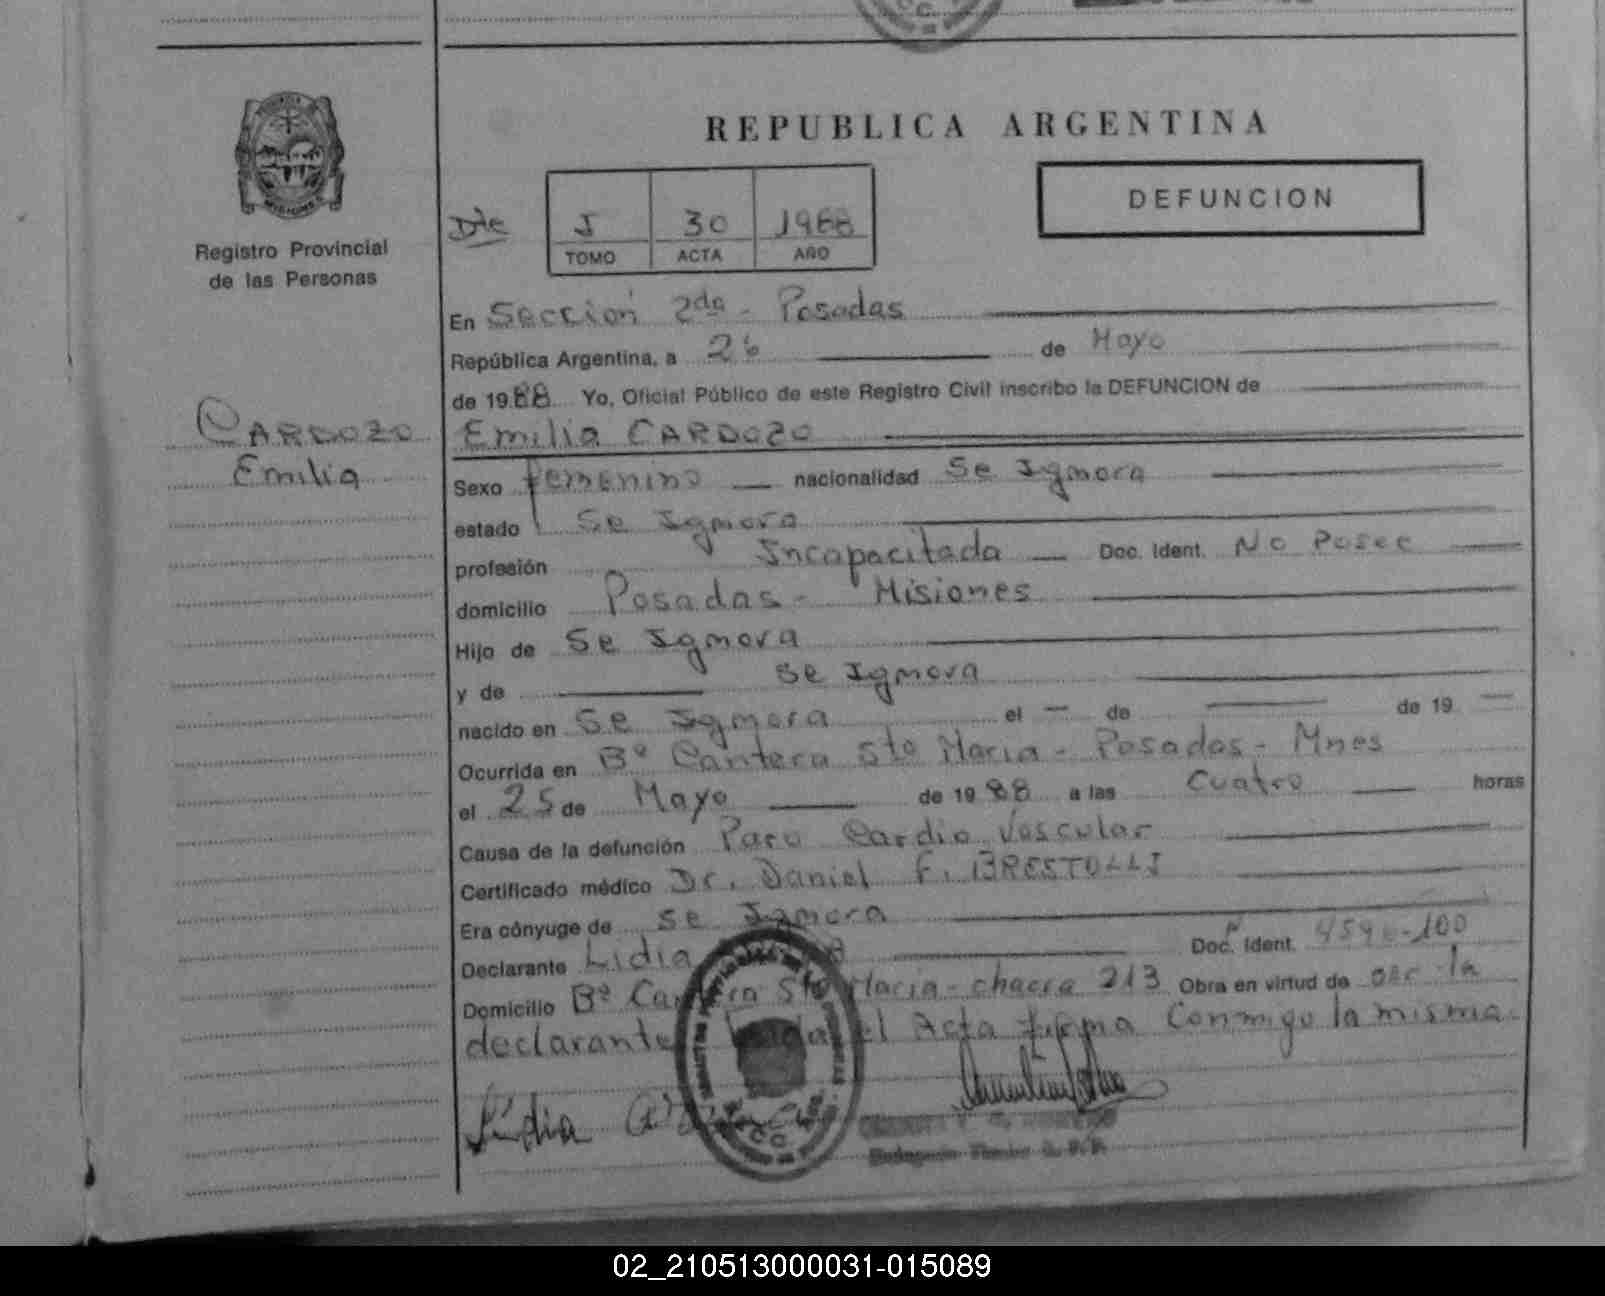 REPUBLICA ARGENTINA
DEFUNCION
I 30 1988
TOMO ACTA AÑO
MISIONES
Registro Provincial
de las Personas
CARDOZO
Emilia
En Sección 2da - Posadas
República Argentina, a 26 de Mayo
de 1988 Yo, Oficial Público de este Registro Civil inscribo la DEFUNCION de
Emilia CARDOZO
Sexo femenino nacionalidad Se Ignora
estado Se Ignora
profesión Incapacitada Doc. Ident. No Posee
domicilio Posadas - Misiones
Hijo de Se Ignora
y de Se Ignora
nacido en Se Ignora el — de — de 19 —
Ocurrida en Bº Cantera Sta Maria - Posadas - Mnes
el 25 de Mayo de 1988 a las Cuatro horas
Causa de la defunción Paro Cardio Vascular
Certificado médico Dr. Daniel F. BRESTOLLI
Era cónyuge de Se Ignora
Declarante Lidia Doc. Ident.
Domicilio Bº Cantera Sta Maria - chacra 213 Obra en virtud de ser la
declarante Leida el Acta firma Conmigo la misma.
Lidia
02_210513000031-015089